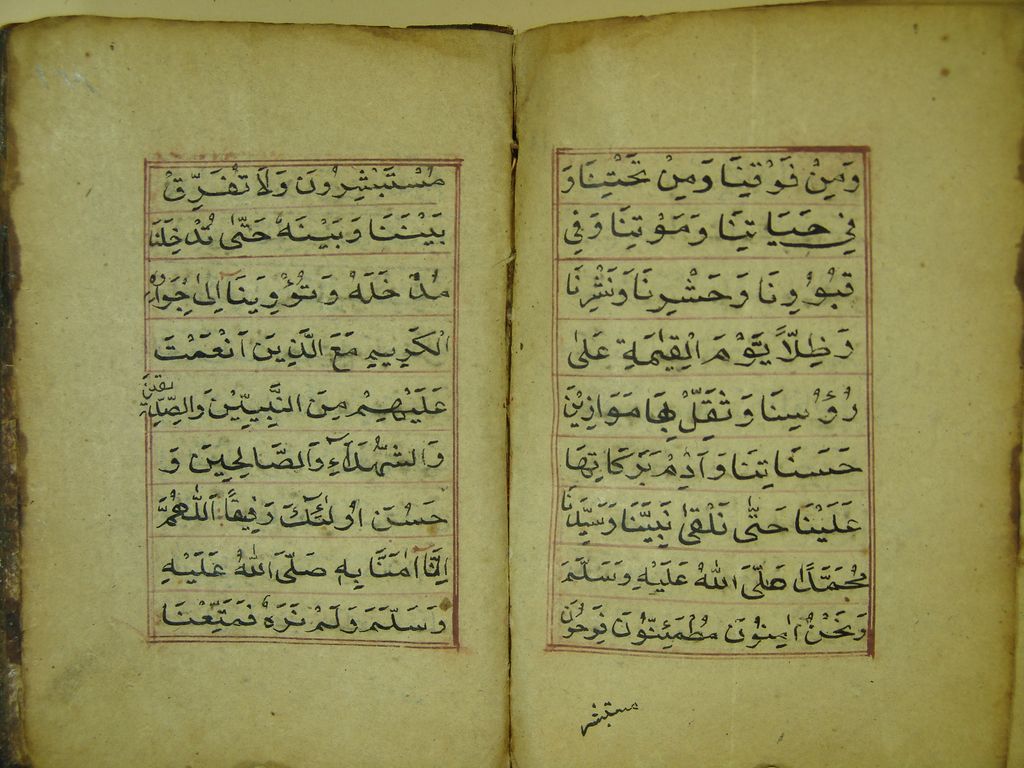 وَمِنْ فَوْقِنَا وَمِنْ تَحْتِنَا وَ
فِي حَيَاتِنَا وَمَوْتِنَا وَفِي
قُبُورِنَا وَحَشْرِنَا وَنَشْرِنَا
وَظِلًّا يَوْمَ الْقِيٰمَةِ عَلٰى
رُؤُسِنَا وَثَقِّلْ بِهَا مَوَازِيْنَ
حَسَنَاتِنَا وَاَدِمْ بَرَكَاتِهَا
عَلَيْنَا حَتّٰى نَلْقٰى نَبِيَّنَا وَسَيِّدَنَا
مُحَمَّدًا صَلَّى اللّٰهُ عَلَيْهِ وَسَلَّمَ
وَنَحْنُ اٰمِنُوْنَ مُطْمَئِنُّوْنَ فَرِحُوْنَ
مستبشر
مُسْتَبْشِرُوْنَ وَلَا تُفَرِّقْ
بَيْنَنَا وَبَيْنَهُ حَتّٰى تُدْخِلَنَا
مُدْخَلَهُ وَتُؤْوِيَنَا اِلٰى جِوَارِهِ
الْكَرِيْمِ مَعَ الَّذِيْنَ اَنْعَمْتَ
عَلَيْهِمْ مِنَ النَّبِيِّيْنَ وَالصِّدِّيقِينَ
وَالشُّهَدَآءِ وَالصَّالِحِيْنَ وَ
حَسُنَ اُولٰئِكَ رَفِيْقًا اَللّٰهُمَّ
اِنَّا اٰمَنَّا بِهِ صَلَّى اللّٰهُ عَلَيْهِ
وَسَلَّمَ وَلَمْ نَرَهُ فَمَتِّعْنَا